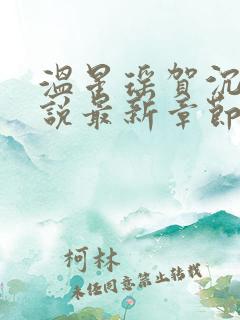 温星瑶贺沉
说最新章节
柯林
未经同意禁止转载